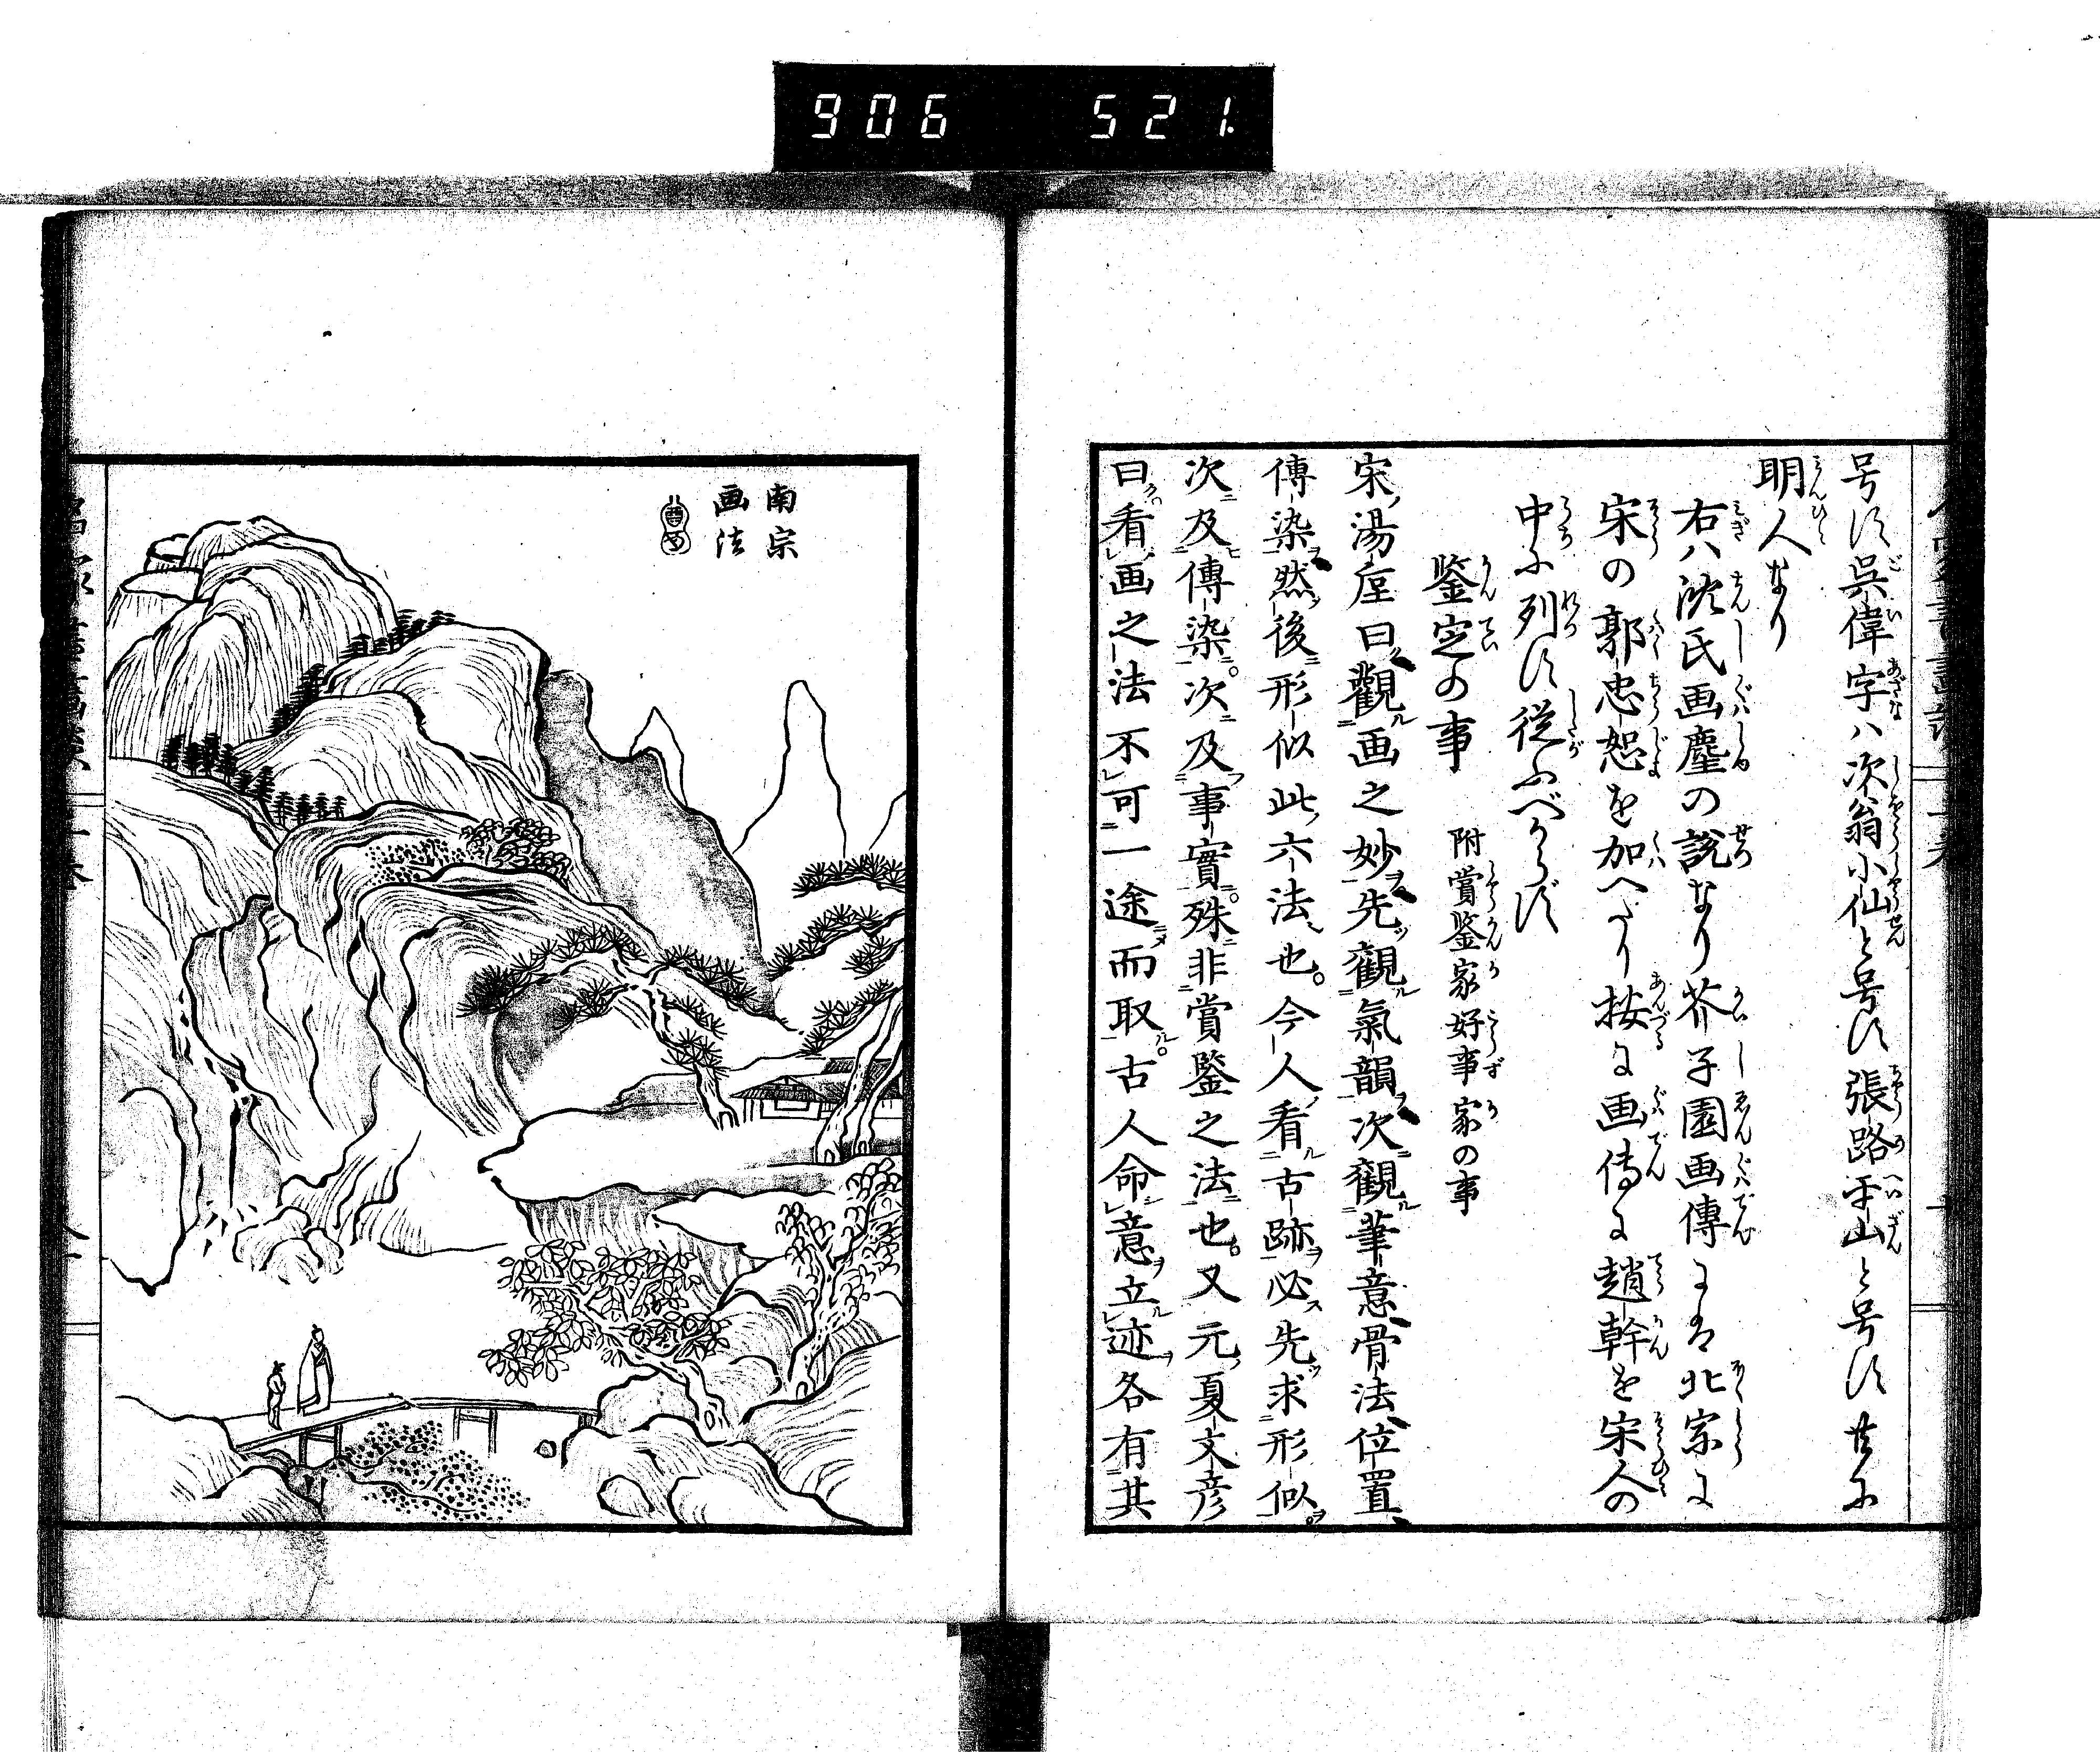 906 521.
号す呉偉字ハ次翁小仙と号す張路平山と号す共に
明人なり
右ハ沈氏画麈の説なり芥子園画傳には北宗に
宋の郭忠恕を加へたり按に画傳に趙幹を宋人の
中に列す従ふべからず
鑒定の事 附賞鑒家好事家の事
宋ノ湯垕曰觀画之妙先觀氣韻次觀筆意骨法位置
傳染然後形似此六法也。今人看古跡必先求形似。
次及傳染。次及事實。殊非賞鑒之法也。又元ノ夏文彦
曰看画之法不可一途而取。古人命意立迹各有其
南宗
画法